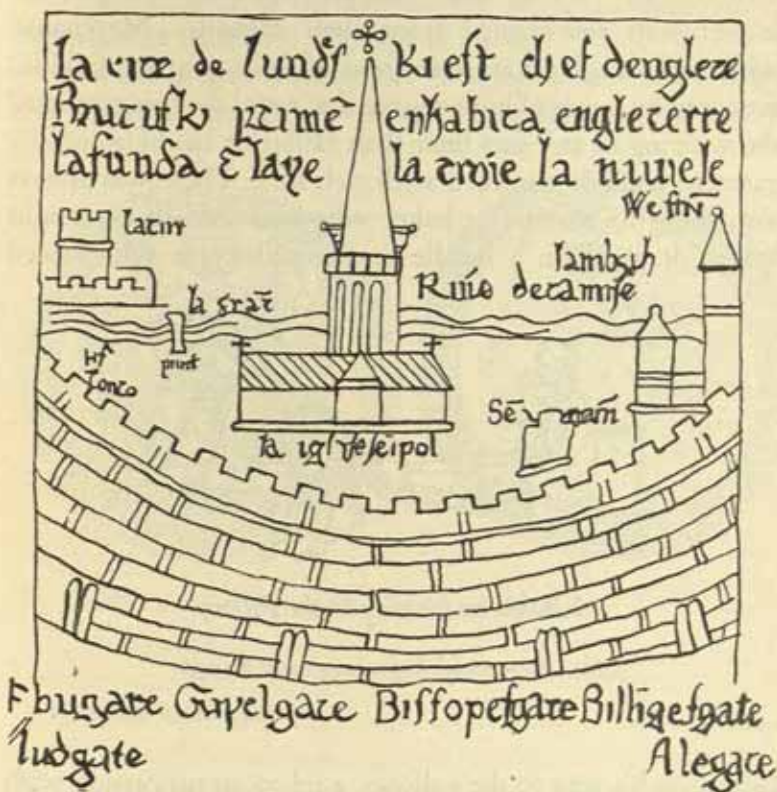 la cite de lundres ki est chef dengletere
Brutus ki primē enhabita engleterre
la funda c̄ laye la troie la nuuele
Westm̄
latur
lambeth
Riue detamise
punt
la igl'se seīpol
Sē mam̄
buzgate Crupelgate Bissopesgate Billīgesgate
ludgate
Alegate